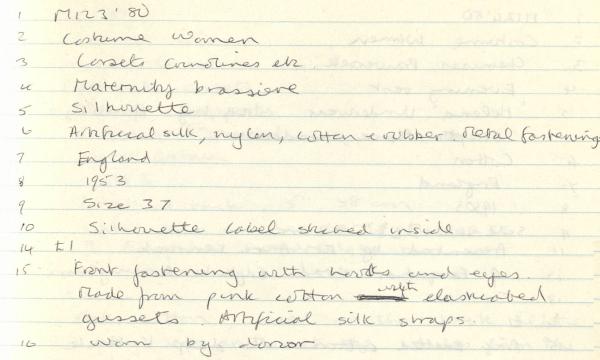 1 M123 '80
2 Costume Women
3 Corsets Crinolines etc
4 Maternity brassiere
5 Silhouette
6 Artificial silk, nylon, cotton & rubber. Metal fastenings
7 England
8 1953
9 Size 37
10 Silhouette label stitched inside
14 £1
15 Front fastening with hooks and eyes.
Made from pink cotton with elasticated
gussets Artificial silk straps.
16 Worn by donor